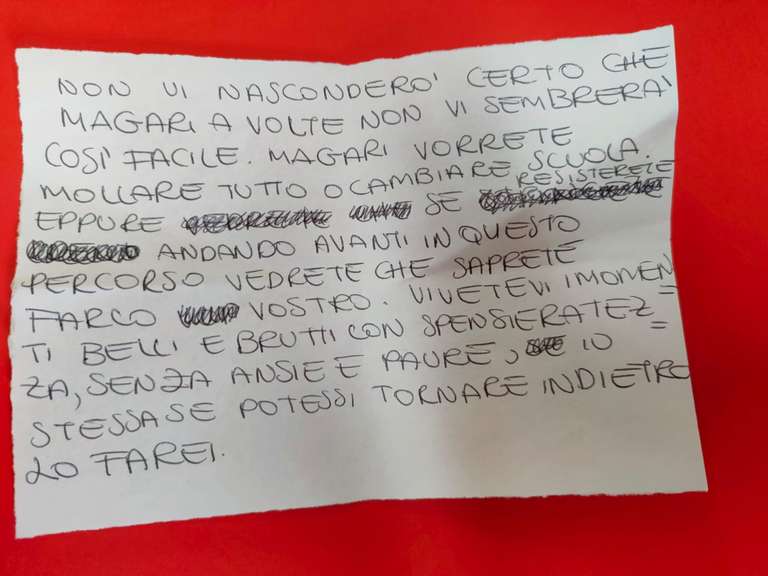 NON VI NASCONDERO' CERTO CHE
MAGARI A VOLTE NON VI SEMBRERA'
COSÌ FACILE. MAGARI VORRETE
MOLLARE TUTTO O CAMBIARE SCUOLA.
RESISTERETE
EPPURE SE
ANDANDO AVANTI IN QUESTO
PERCORSO VEDRETE CHE SAPRETE
FARLO VOSTRO. VIVETEVI I MOMEN=
TI BELLI E BRUTTI CON SPENSIERATEZ=
ZA, SENZA ANSIE E PAURE, IO
STESSA SE POTESSI TORNARE INDIETRO
LO FAREI.